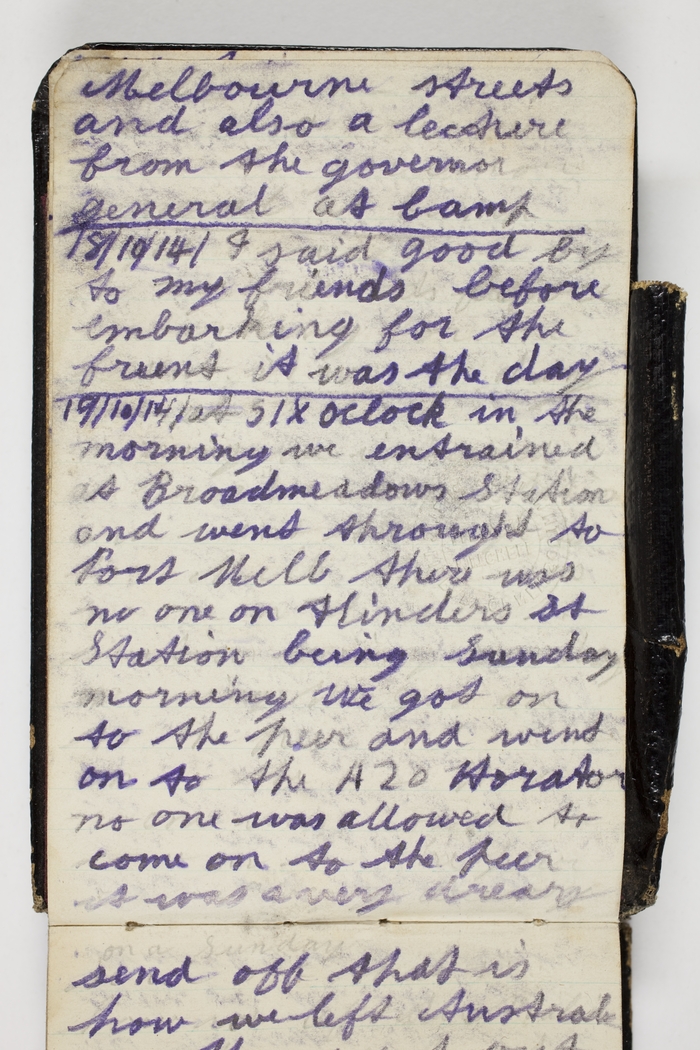 Melbourne streets
and also a lecthere
from the governor
general at Camp
18/10/14/ I said good by
to my friends before
embarking for the
freent it was the day
19/10/14/ at six oclock in the
morning we entrained
at Broadmeadows Station
and went throught to
Port Melb there was
no one on Flinders St
Station being Sunday
morning we got on
to the peer and wint
on to the A20 Horator
no one was allowed to
come on to the peer
it was a very dreary
on a Sunday
send off that is
how we left Austral